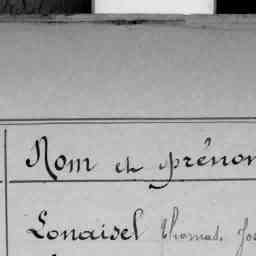 Nom et prénom
Lonaisel Thomas, Jos